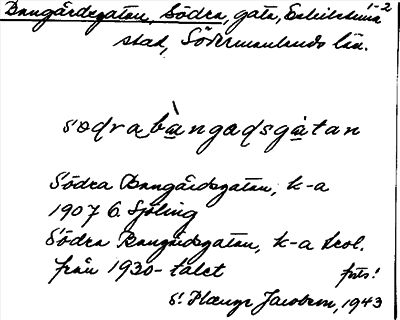 Bangårdsgatan, Södra, gata, Eskilstuna 1-2
stad, Södermanlands län.
södrabàngadsgàtan
Södra Bangårdsgatan, k-a
1907 G. Sjöling
Södra Bangårdsgatan, k-a trol.
från 1930-talet forts!
S. Hænge Jacobsson, 1943